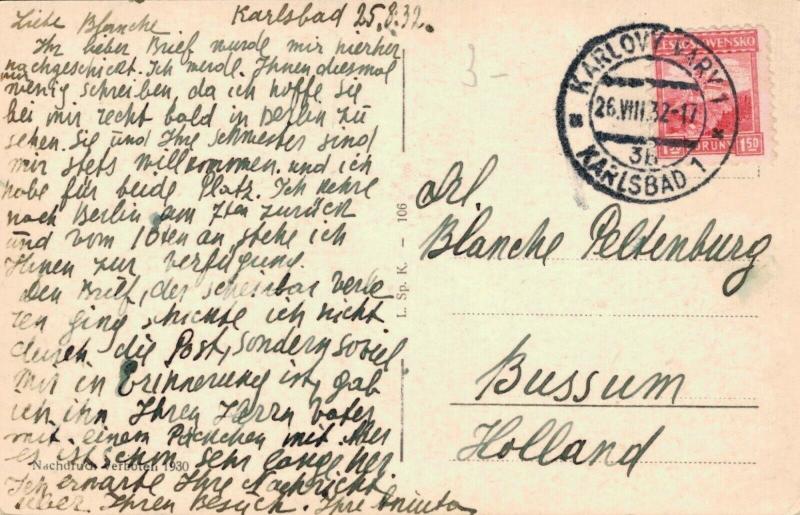 Karlsbad 25.8.32.
Liebe Blanche
Ihr lieber Brief wurde mir hierher
nachgeschickt. Ich werde Ihnen diesmal
nur wenig schreiben, da ich hoffe sie
bei mir recht bald in Berlin zu
sehen. Sie und Ihre Schwester sind
mir stets willkommen und ich
habe für beide Platz. Ich kehre
nach Berlin am 7ten zurück
und vom 10ten an, stehe ich
Ihnen zur Verfügung.
Den Brief, der scheinbar verlo
ren ging schickte ich nicht
durch die Post, sondern soviel
mir in Erinnerung ist, gab
ich ihn Ihren Herrn Vater
mit einem Päckchen mit. Aber
es ist schon sehr lange her.
Ich erwarte Ihre Nachricht
über Ihren Besuch. Ihre
Nachdruck verboten 1930
L. Sp. K. — 106
3-
KARLOVY VARY 1
26.VIII.32-17
3b
KARLSBAD 1
ČESKOSLOVENSKO
1.50
Blanche Peltenburg
Bussum
Holland